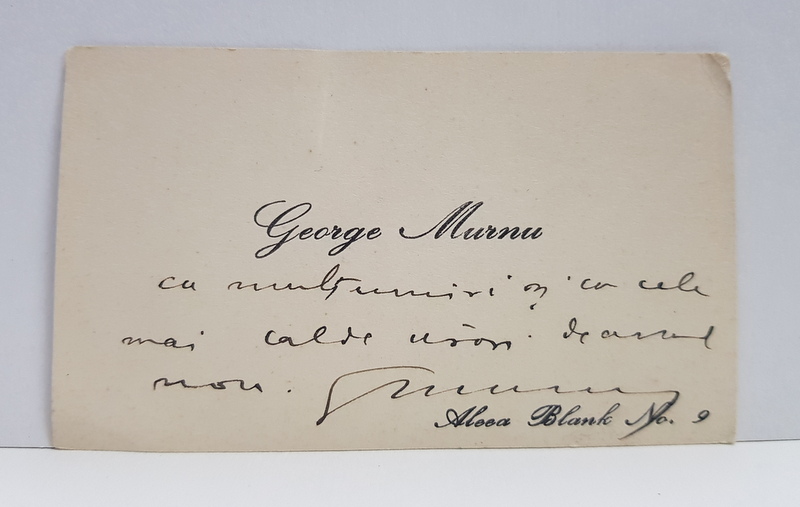 George Murnu
cu mulțumiri și cu cele
mai calde urări de anul
nou. GMurnu
Aleea Blank No. 9